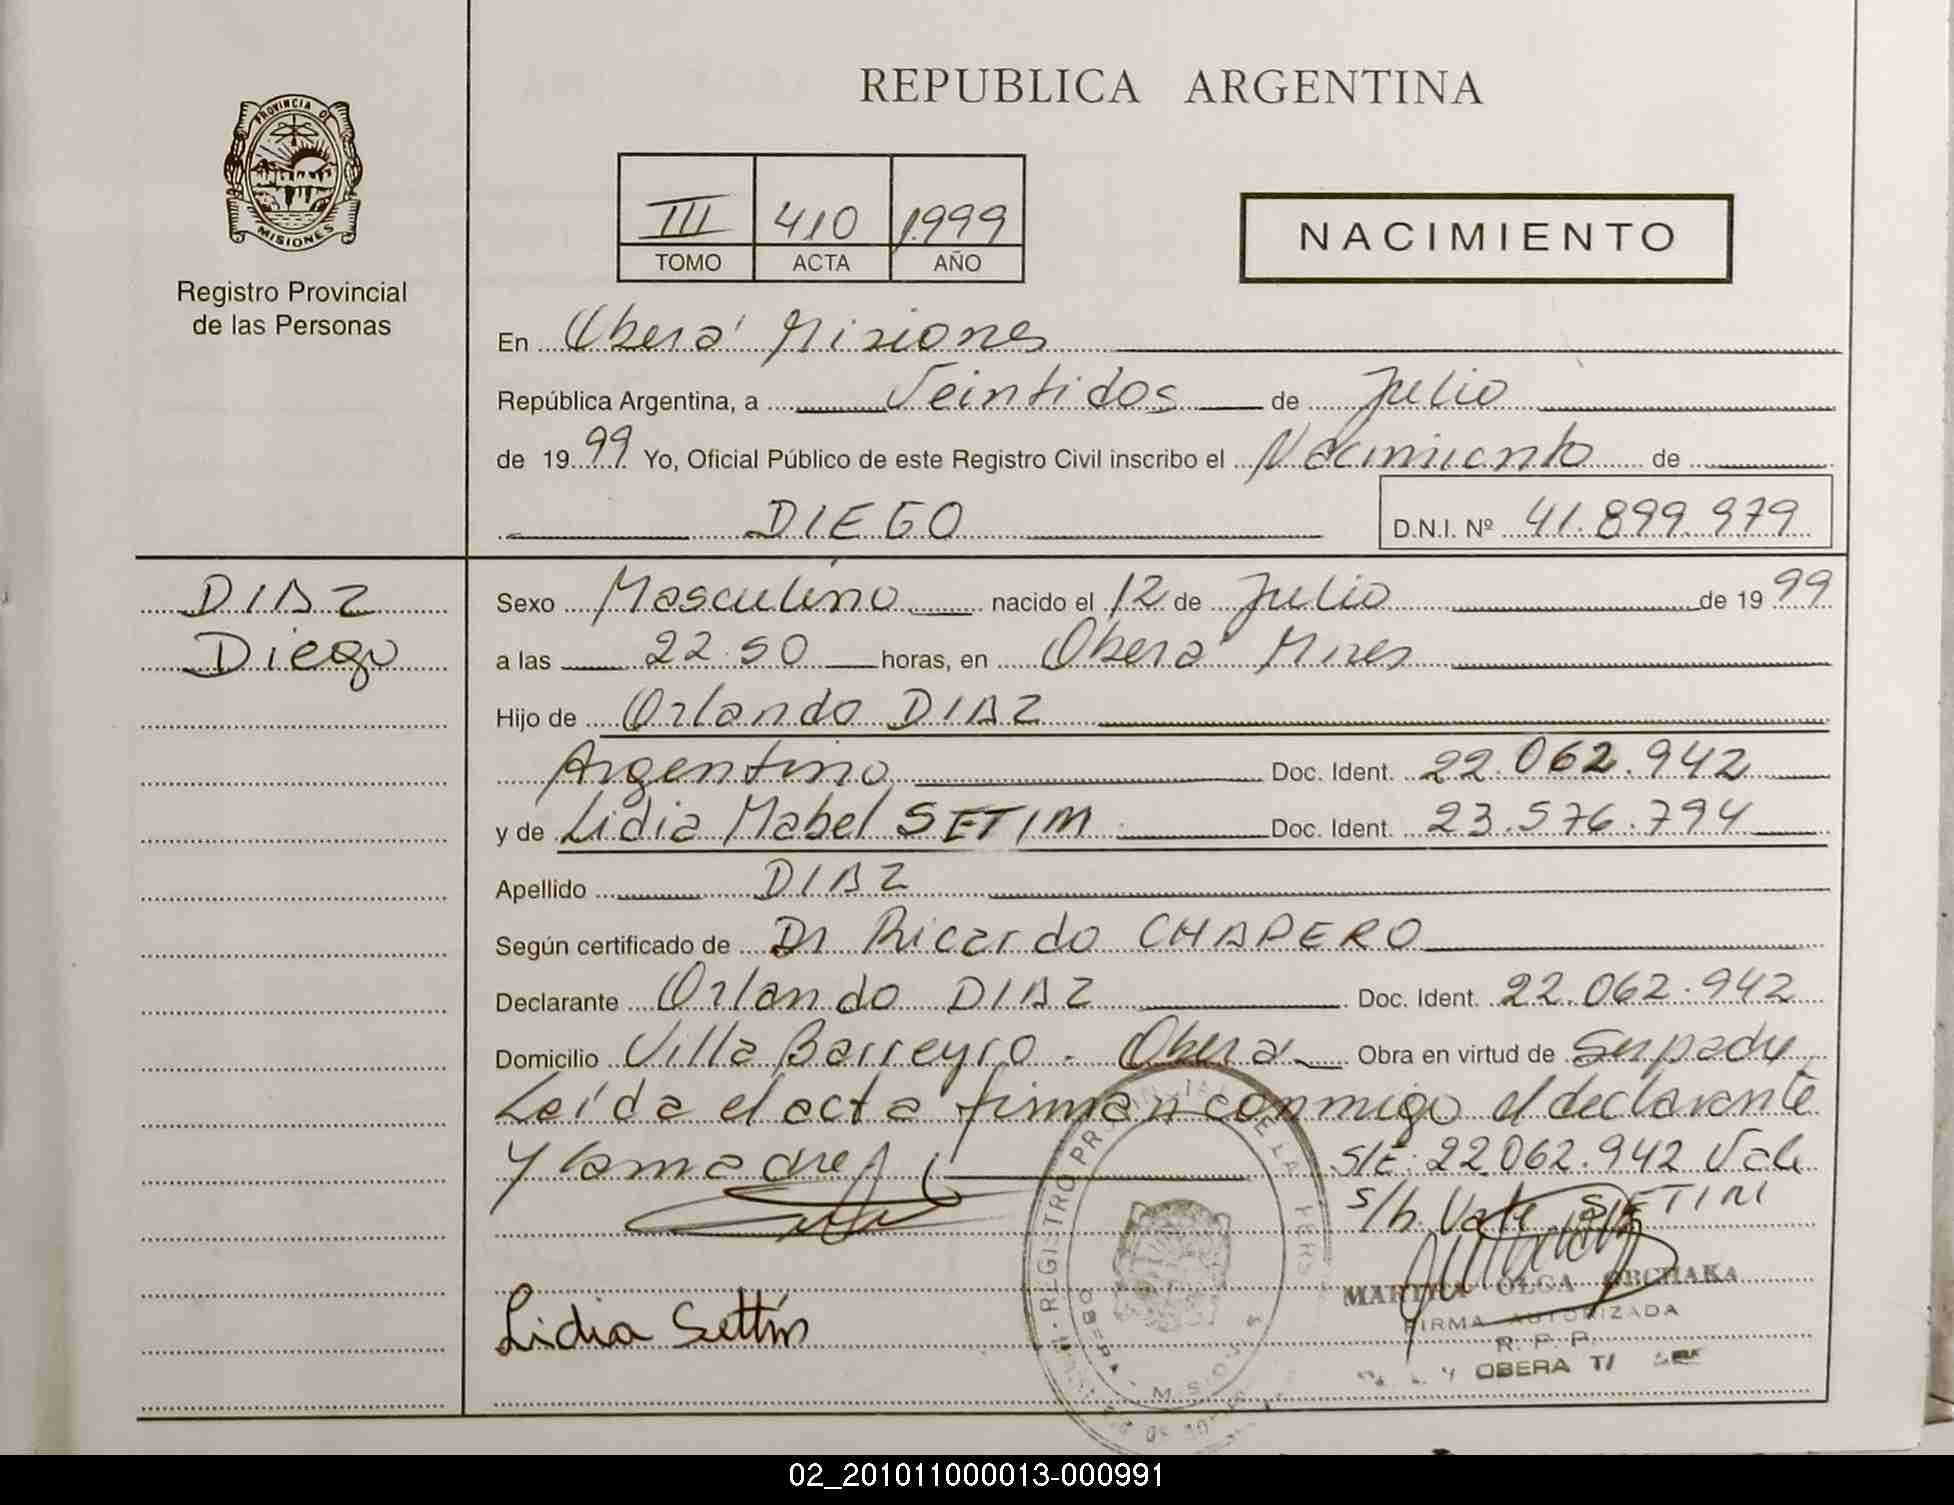 PROVINCIA DE
MISIONES
Registro Provincial
de las Personas
REPUBLICA ARGENTINA
III 410 1999
TOMO ACTA AÑO
NACIMIENTO
En Oberá Misiones
República Argentina, a Veintidos de Julio
de 1999 Yo, Oficial Público de este Registro Civil inscribo el Nacimiento de
DIEGO D.N.I. Nº 41.899.979
DIAZ
Diego
Sexo Masculino nacido el 12 de Julio de 1999
a las 22.50 horas, en Oberá Mnes
Hijo de Orlando DIAZ
Argentino Doc. Ident. 22.062.942
y de Lidia Mabel SETIM Doc. Ident. 23.576.794
Apellido DIAZ
Según certificado de Dr Ricardo CHAPERO
Declarante Orlando DIAZ Doc. Ident. 22.062.942
Domicilio Villa Barreyro - Oberá Obra en virtud de Ser padre
Leída el acta firman conmigo el declarante
y la madre S/E: 22.062.942 Vale
S/b. Vale SETIM
Lidia Settim
MARTHA OLGA ORCHAKA
FIRMA AUTORIZADA
R. P. P.
OBERA
02_201011000013-000991